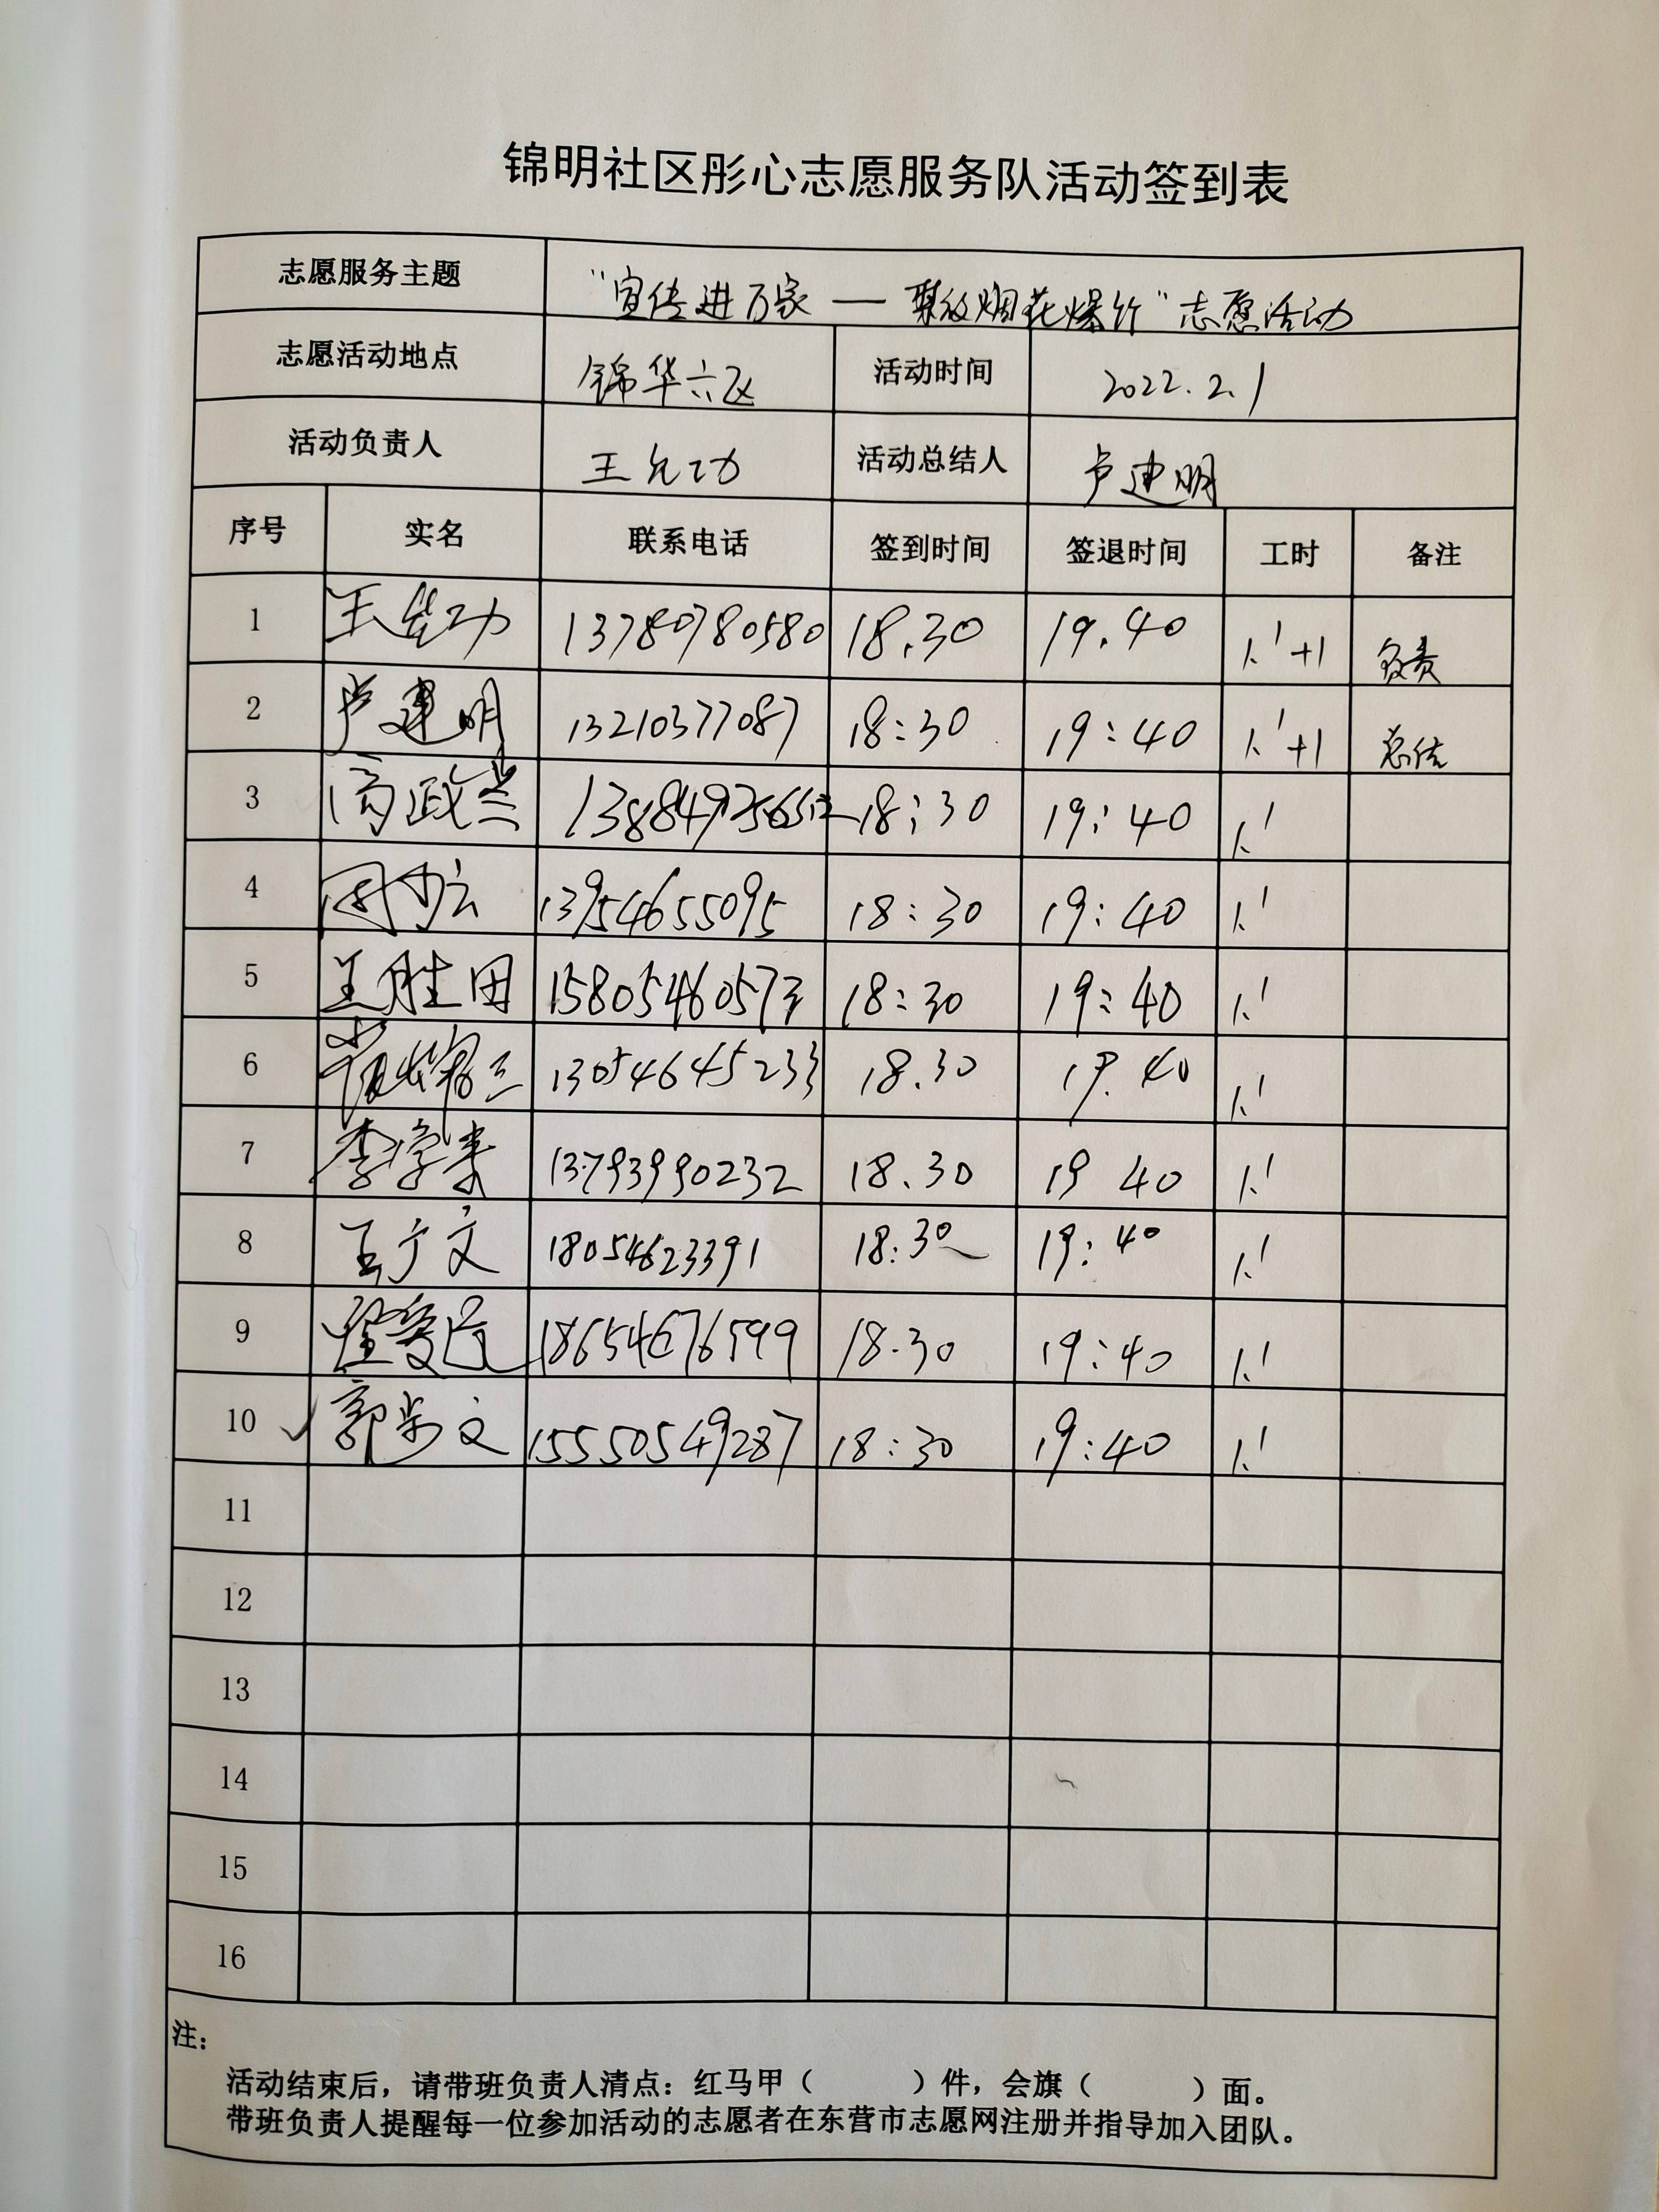 锦明社区彤心志愿服务队活动签到表
志愿服务主题 “宣传进万家 — 禁放烟花爆竹”志愿活动
志愿活动地点 锦华六区 活动时间 2022.2.1
活动负责人 王允功 活动总结人 卢建明
序号 实名 联系电话 签到时间 签退时间 工时 备注
1 13780780580 18.30 19.40 1.1+1 负责
2 卢建明 13210377087 18:30 19:40 1.1+1 总结
3 18:30 19:40 1.1
4 13954655095 18:30 19:40 1.1
5 王胜田 18:30 19:40 1.1
6 13054645233 18.30 19.40 1.1
7 13793990232 18.30 19 40 1.1
8 王广文 18054623391 18:30 19:40 1.1
9 18654676599 18.30 19:40 1.1
10 15550549287 18:30 19:40 1.1
11
12
13
14
15
16
注：
活动结束后，请带班负责人清点：红马甲（ ）件，会旗（ ）面。
带班负责人提醒每一位参加活动的志愿者在东营市志愿网注册并指导加入团队。